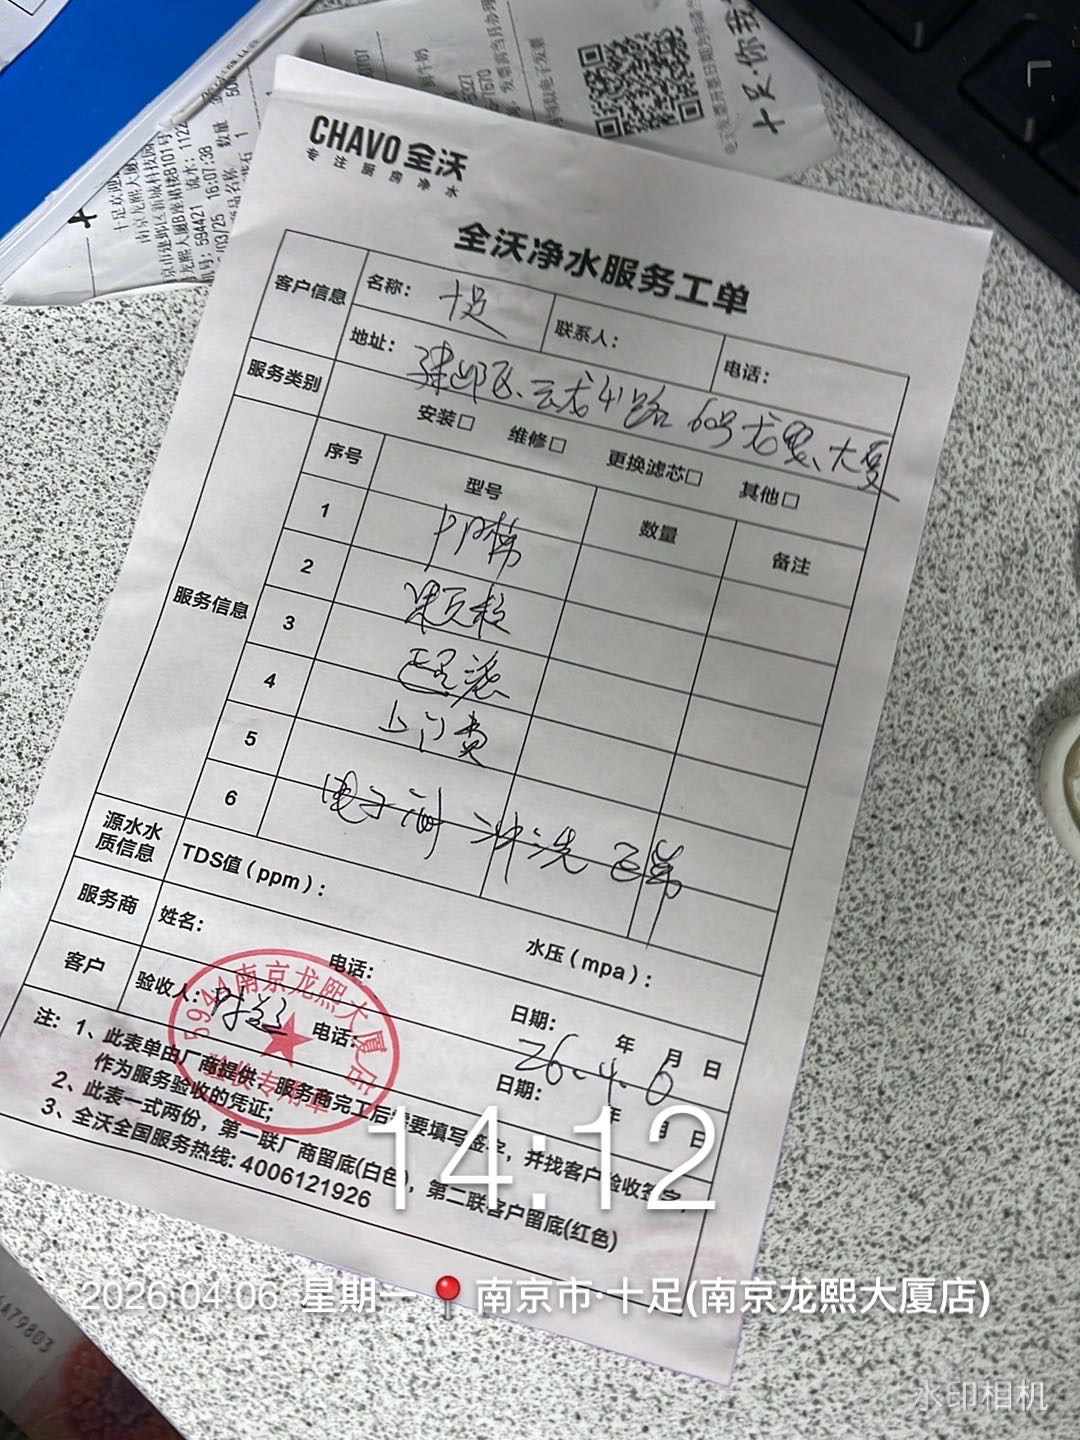 CHAVO 全沃
专注厨房净水
全沃净水服务工单
客户信息
名称: 十足
联系人:
电话:
地址: 建邺区云龙山路60号龙熙大厦
服务类别
安装□ 维修□ 更换滤芯□ 其他□
服务信息
序号 型号 数量 备注
1 PP棉
2 颗粒
3 超滤
4 上门费
5
6 电子阀冲洗正常
源水水质信息
TDS值(ppm):
水压(mpa):
服务商
姓名:
电话:
日期: 年 月 日
客户
验收人:
电话:
日期: 年 月 日
26.4.6
5944南京龙熙大厦店
验收专用章
注: 1、此表单由厂商提供, 服务商完工后需要填写签字, 并找客户验收签字,
作为服务验收的凭证;
2、此表一式两份, 第一联厂商留底(白色), 第二联客户留底(红色)
3、全沃全国服务热线: 4006121926
14:12
2026.04.06 星期一 南京市·十足(南京龙熙大厦店)
水印相机
十足·你我
594421
16:07:38
A79803